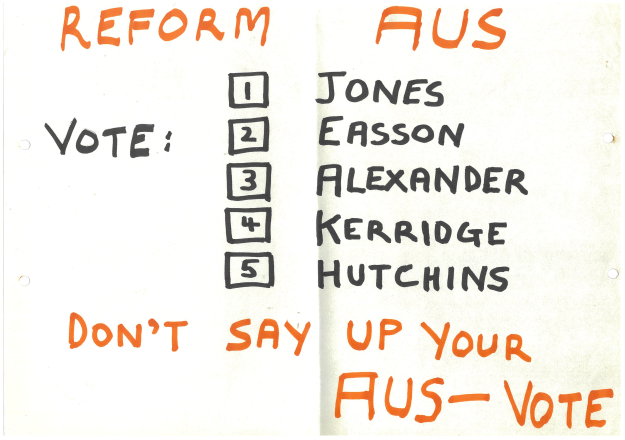 REFORM AUS
VOTE:
1 JONES
2 EASSON
3 ALEXANDER
4 KERRIDGE
5 HUTCHINS
DON'T SAY UP YOUR
AUS-VOTE